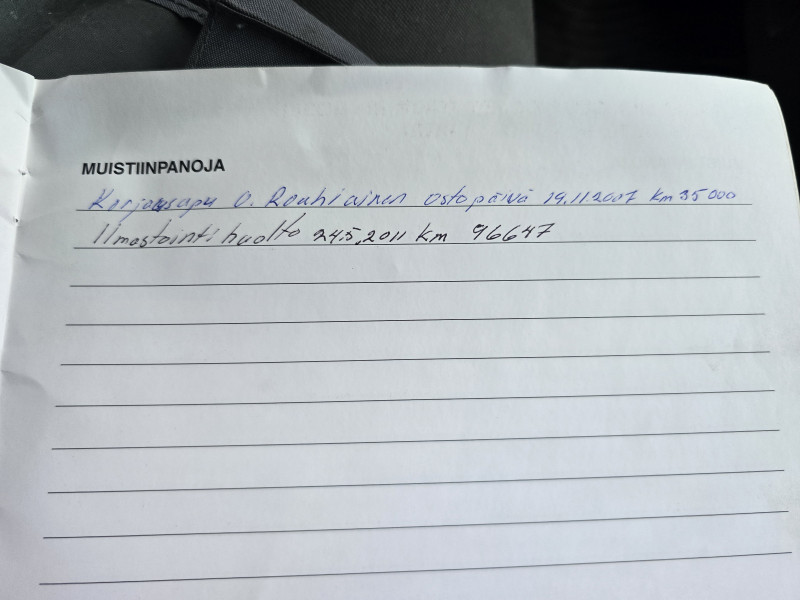 MUISTIINPANOJA
Korjausapu O. Rouhiainen ostopäivä 19.11.2007 km 35000
Ilmastointihuolto 24.5.2011 km 96647